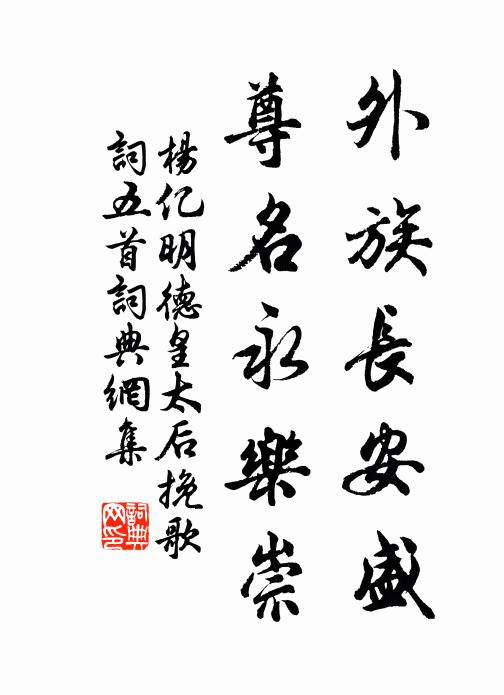 外族長安盛
尊名永樂崇
楊亿明德皇太后挽歌
詞五首詞典網集
詞典网印